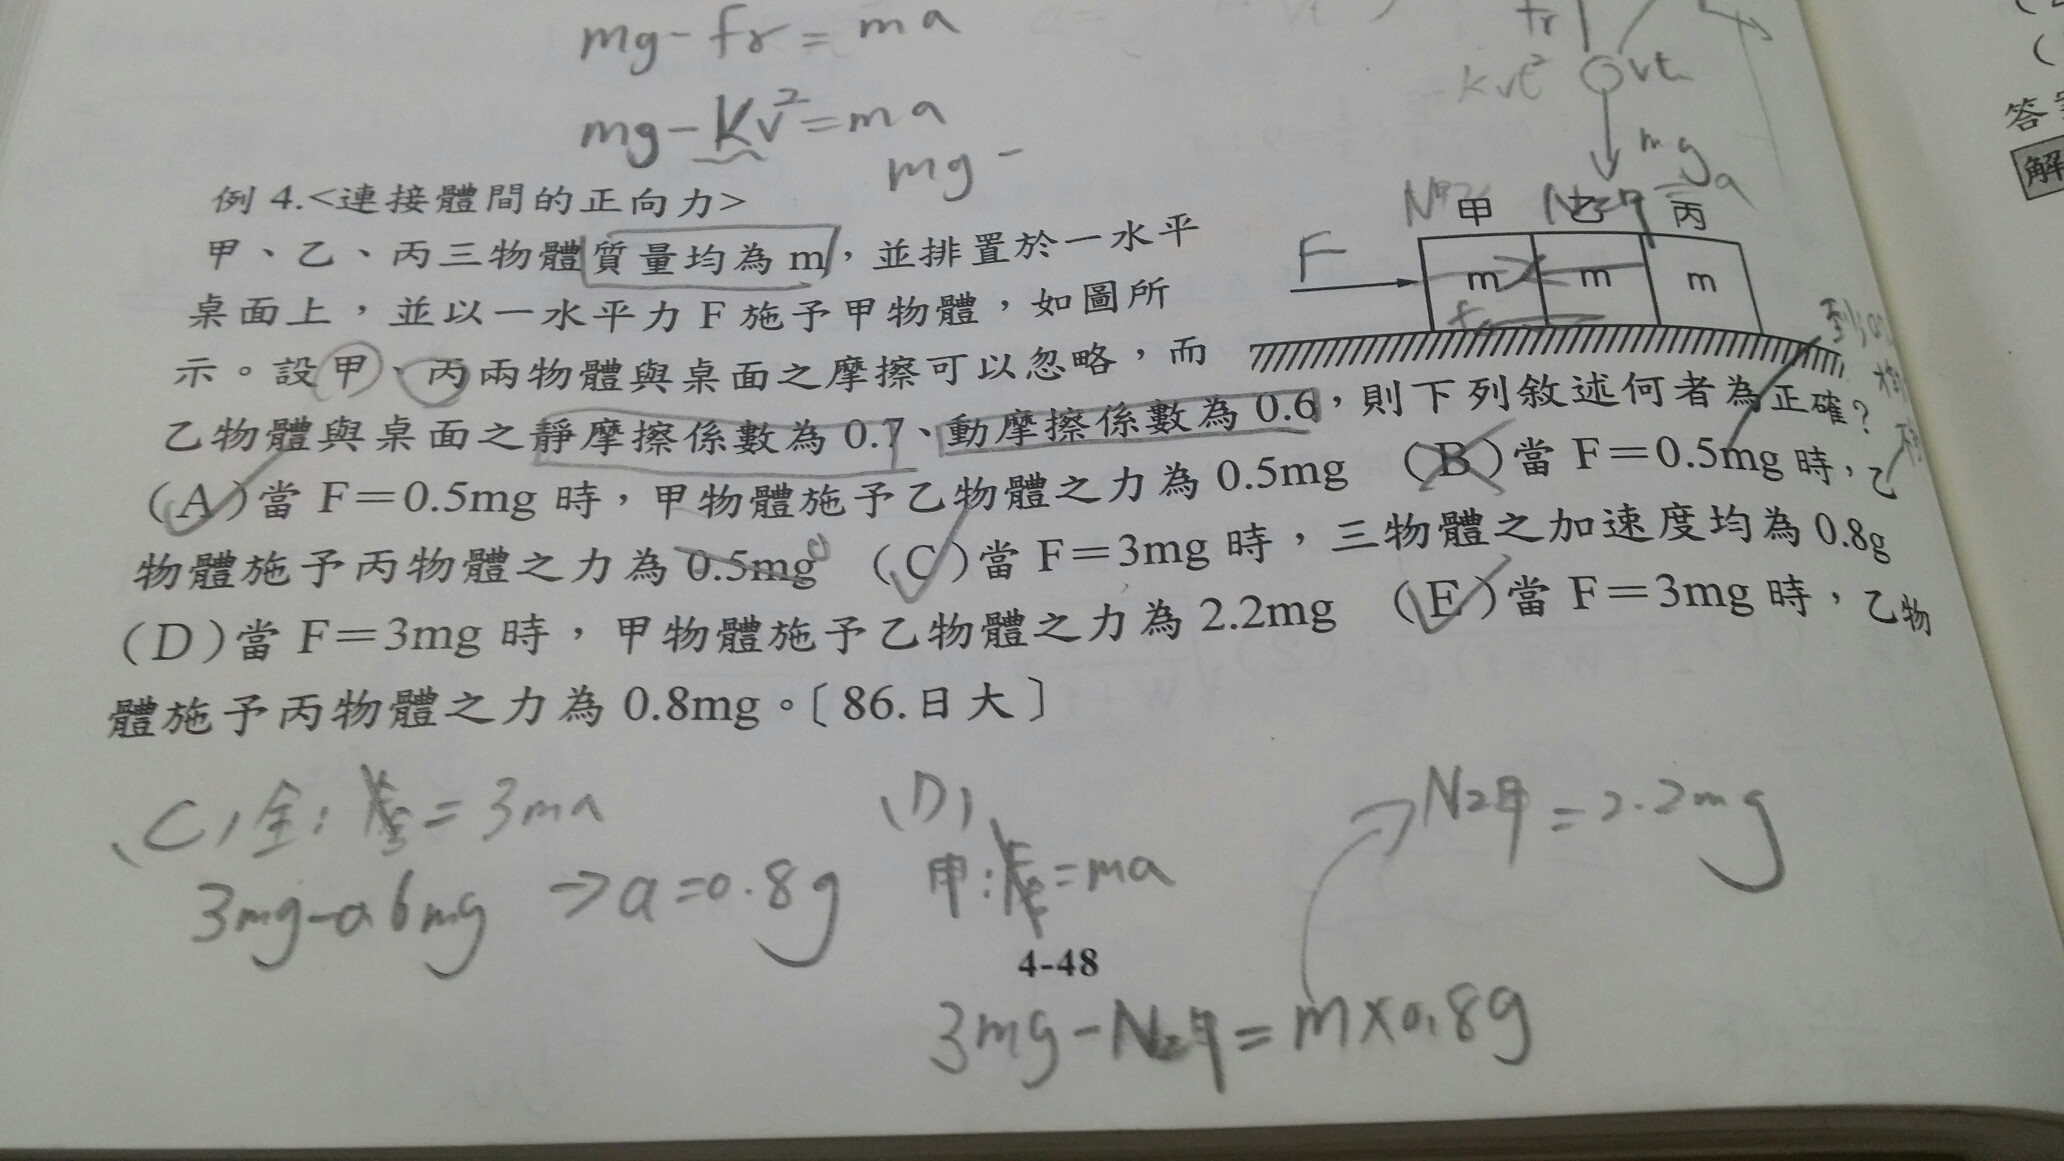 mg-fr=ma
mg-Kv²=ma
mg-
fr
-kvt²
vt
mg
a
例 4.<連接體間的正向力>
甲、乙、丙三物體質量均為 m,並排置於一水平
桌面上,並以一水平力 F 施予甲物體,如圖所
示。設甲、丙兩物體與桌面之摩擦可以忽略,而
乙物體與桌面之靜摩擦係數為 0.7、動摩擦係數為 0.6,則下列敘述何者為正確?
(A)當 F=0.5mg 時,甲物體施予乙物體之力為 0.5mg (B)當 F=0.5mg 時,乙
物體施予丙物體之力為 0.5mg (C)當 F=3mg 時,三物體之加速度均為 0.8g
(D)當 F=3mg 時,甲物體施予乙物體之力為 2.2mg (E)當 F=3mg 時,乙物
體施予丙物體之力為 0.8mg。〔86.日大〕
甲 丙
F
m m m
(C)全: =3ma
3mg-0.6mg →a=0.8g
(D)
甲: =ma
3mg-N乙甲=m×0.8g
→N乙甲=2.2mg
4-48
答
解